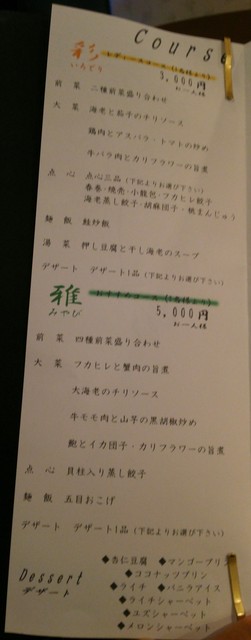 Course
彩
いろどり
レディースコース(2名様より)
3,000円
お一人様
前菜 二種前菜盛り合わせ
大菜 海老と茄子のチリソース
鶏肉とアスパラ・トマトの炒め
牛バラ肉とカリフラワーの旨煮
点心 点心三品(下記よりお選び下さい)
春巻・焼売・小龍包・フカヒレ餃子
海老蒸し餃子・胡麻団子・桃まんじゅう
麺飯 鮭炒飯
湯菜 押し豆腐と干し海老のスープ
デザート デザート1品(下記よりお選び下さい)
雅
みやび
おすすめコース(2名様より)
5,000円
お一人様
前菜 四種前菜盛り合わせ
大菜 フカヒレと蟹肉の旨煮
大海老のチリソース
牛モモ肉と山芋の黒胡椒炒め
鮑とイカ団子・カリフラワーの旨煮
点心 貝柱入り蒸し餃子
麺飯 五目おこげ
デザート デザート1品(下記よりお選び下さい)
Dessert
デザート
◆杏仁豆腐 ◆マンゴープリン
◆ココナッツプリン
◆ライチ ◆バニラアイス
◆ライチシャーベット
◆ユズシャーベット
◆メロンシャーベット